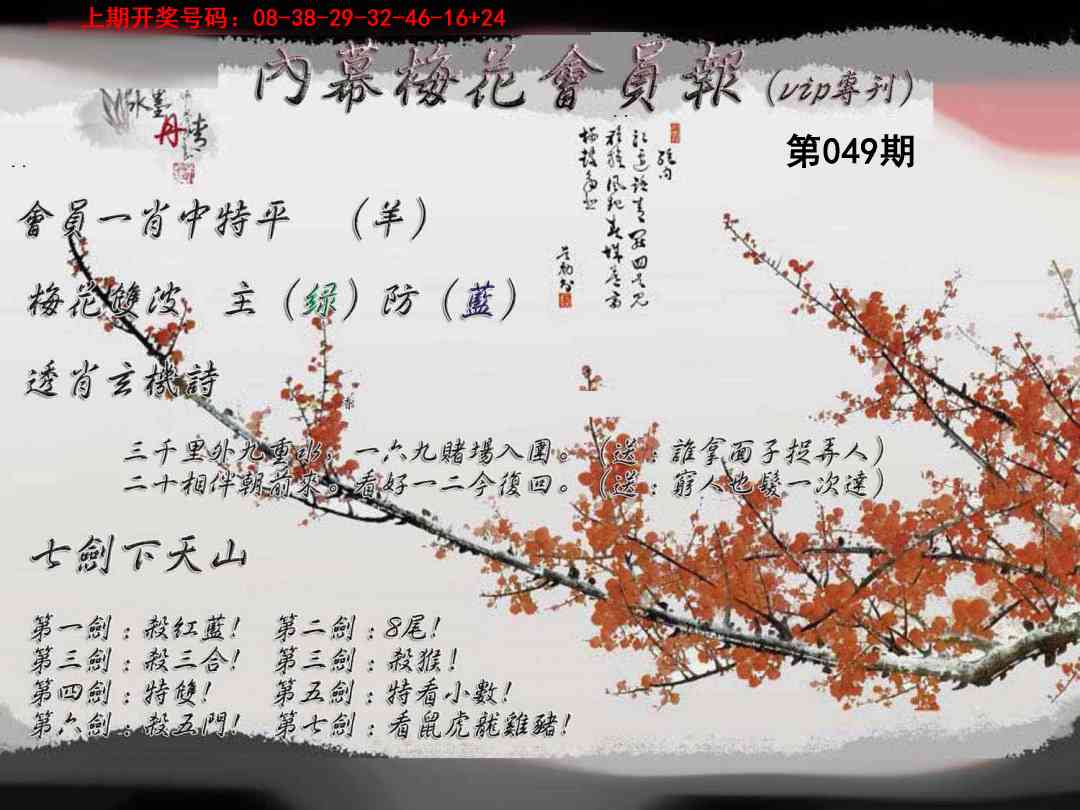 上期开奖号码：08-38-29-32-46-16+24
內幕梅花會員報（vip專刊）
水墨
丹青
第049期
會員一肖中特平 （羊）
梅花雙波 主（绿）防（藍）
透肖玄機詩
三千里外九重水，一六九賭場入圍。（送：誰拿面子捉弄人）
二十相伴朝前來。看好一二今復回。（送：窮人也發一次達）
七劍下天山
第一劍：殺紅藍！ 第二劍：8尾！
第三劍：殺三合！ 第三劍：殺猴！
第四劍：特雙！ 第五劍：特看小數！
第六劍：殺五門！ 第七劍：看鼠虎龍雞豬！